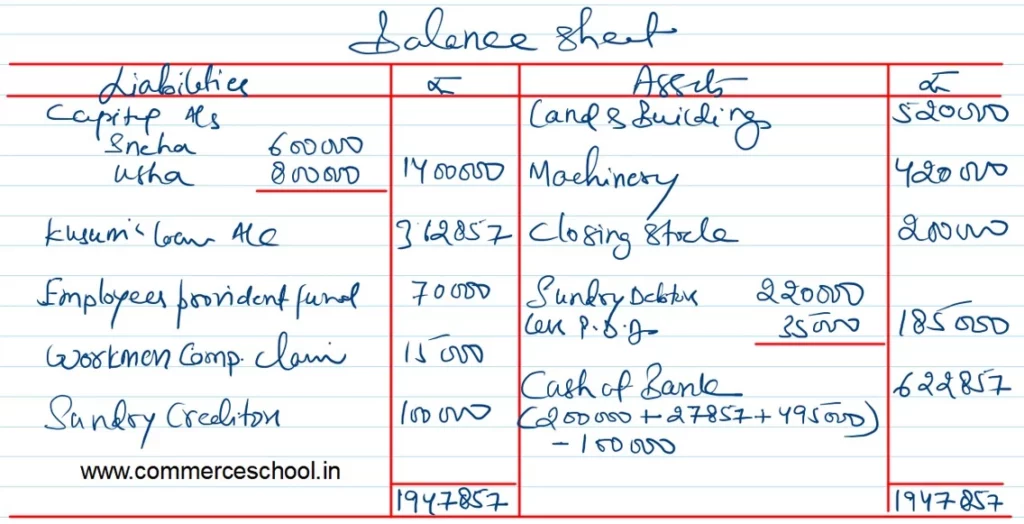 Balance Sheet
Liabilities ₹ Assets ₹
Capital A/cs Land & Buildings 520000
Sneha 600000
Usha 800000 1400000 Machinery 420000
Kusum's loan A/c 362857 Closing Stock 200000
Employees provident fund 70000 Sundry Debtors 220000
Less P.D.D. 35000 185000
Workmen Comp. Claim 15000
Cash at Bank 622857
Sundry Creditors 100000 (200000 + 27857 + 495000)
- 100000
www.commerceschool.in
1947857 1947857